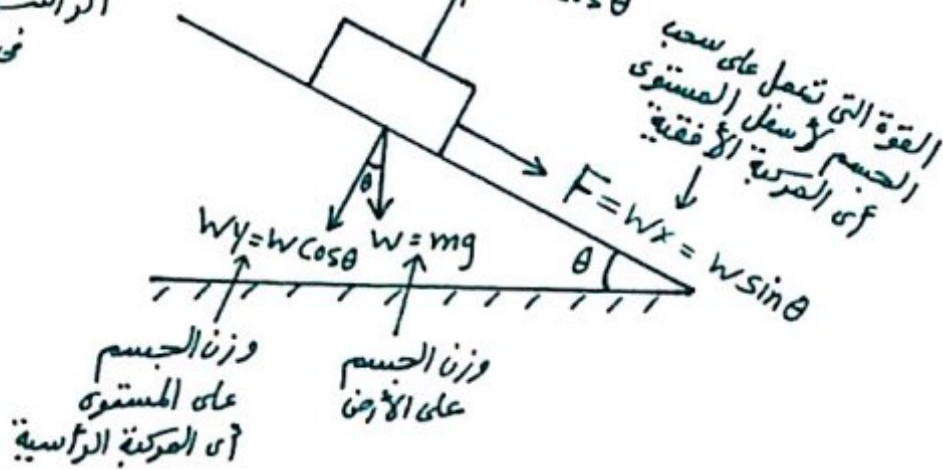 القوة التى تعمل على سحب
الجسم لأسفل المستوى
أى المركبة الأفقية
F = Wx = W sin θ
θ
θ
Wy = W cos θ
W = mg
وزن الجسم
على المستوى
أى المركبة الرأسية
وزن الجسم
على الأرض